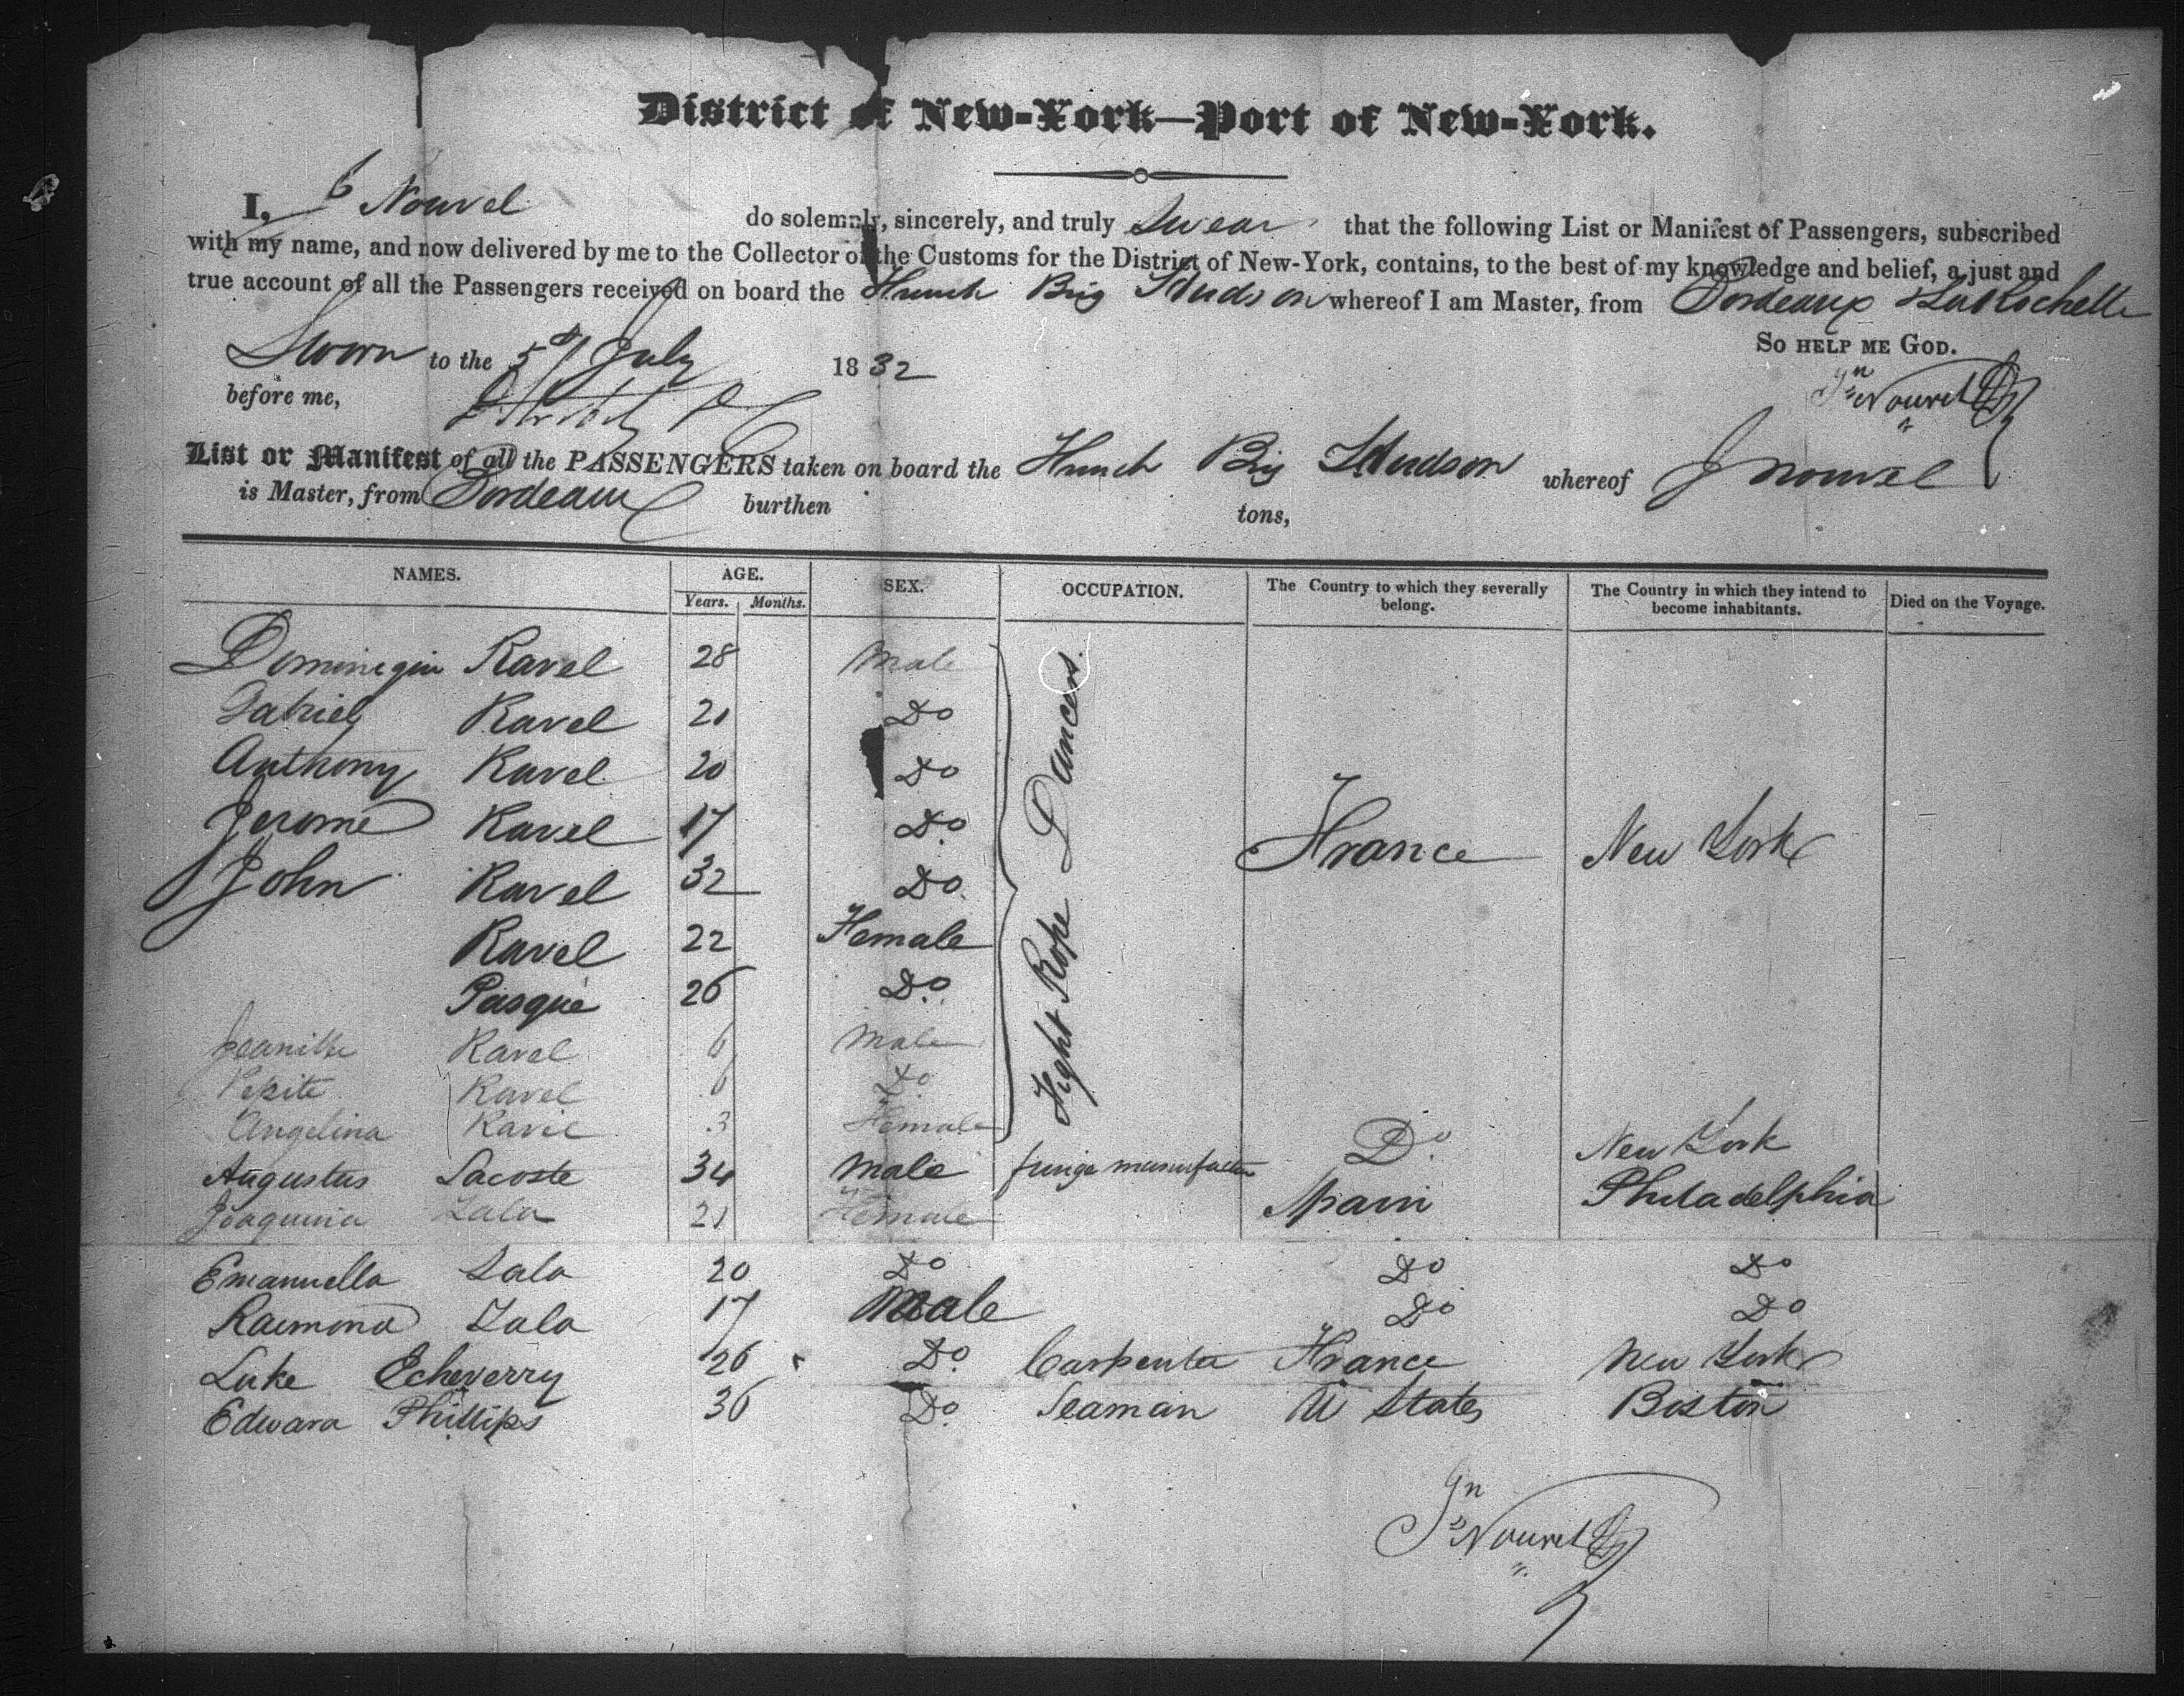 District of New-York—Port of New-York.
I, Nouvel do solemnly, sincerely, and truly Swear that the following List or Manifest of Passengers, subscribed
with my name, and now delivered by me to the Collector of the Customs for the District of New-York, contains, to the best of my knowledge and belief, a just and
true account of all the Passengers received on board the French Brig Hudson whereof I am Master, from Bordeaux & La Rochelle
So HELP ME GOD.
Sworn to the 5th July 1832
before me,
Jn Nouvel
List or Manifest of all the PASSENGERS taken on board the French Brig Hudson whereof J Nouvel
is Master, from Bordeaux burthen tons,
NAMES. AGE. SEX. OCCUPATION. The Country to which they severally belong. The Country in which they intend to become inhabitants. Died on the Voyage.
Years. Months.
Dominique Ravel 28 Male
Gabriel Ravel 21 Do
Anthony Ravel 20 Do
Jerome Ravel 17 Do
John Ravel 32 Do
Tight Rope Dancers
France New York
Ravel 22 Female
Pasque 26 Do
Jeanitte Ravel 6 Male
Pepite Ravel 6 Do
Angelina Ravel 3 Female
Augustus Lacoste 34 Male fringe manufactur Do New York
Joaquina Lala 21 Female Spain Philadelphia
Emanuella Lala 20 Do Do Do
Raimond Lala 17 Male Do Do
Luke Echeverry 26 Do Carpenter France New York
Edward Phillips 36 Do Seaman U States Boston
Jn Nouvel